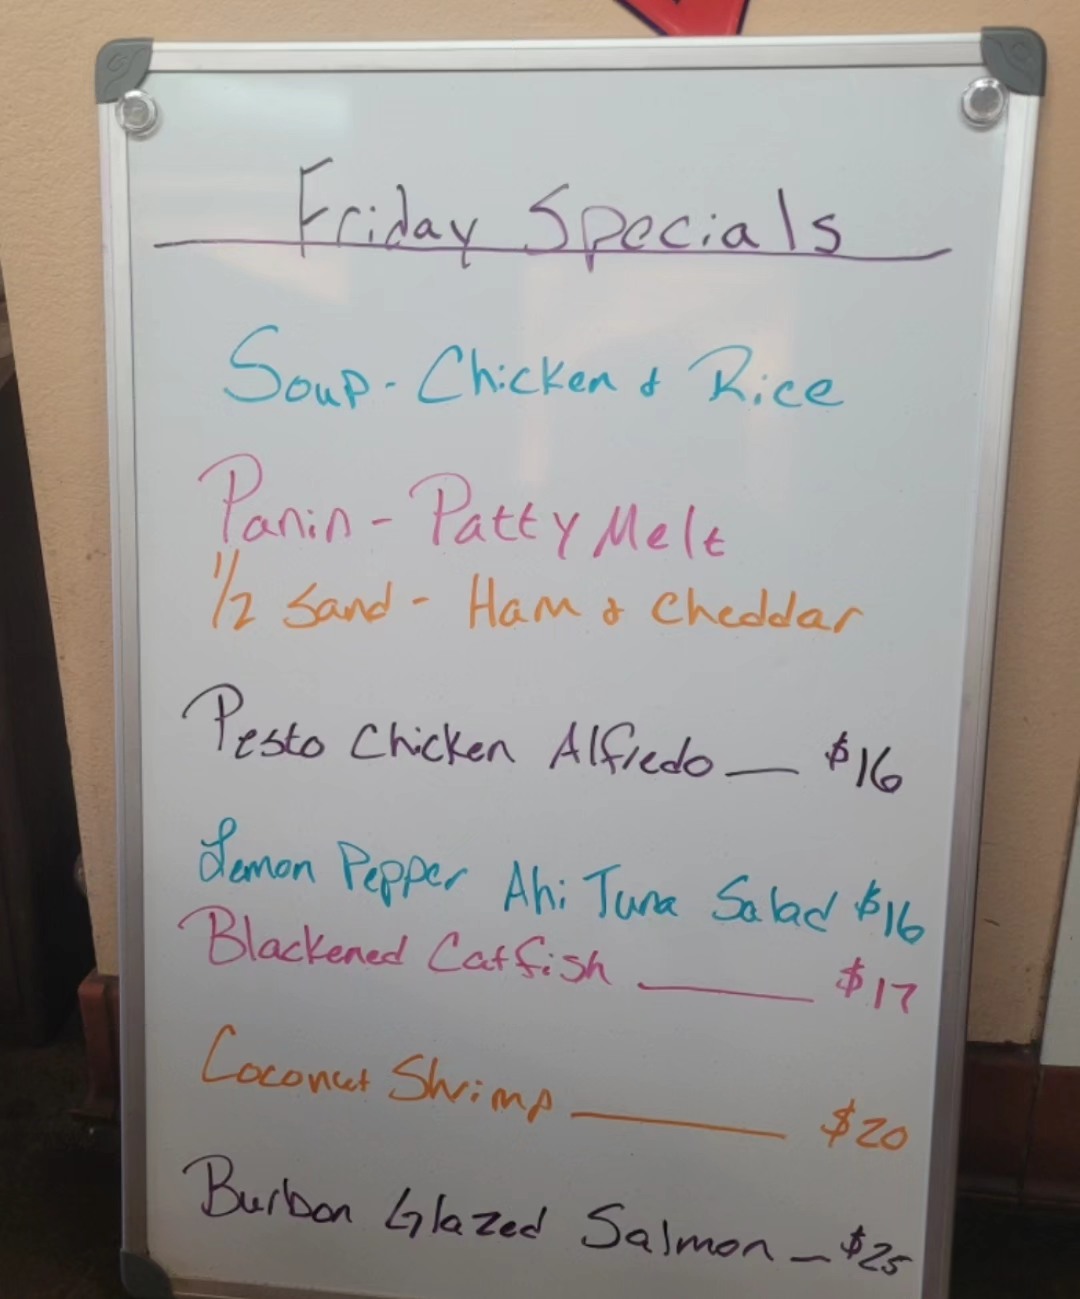 Friday Specials
Soup - Chicken & Rice
Panin - Patty Melt
1/2 Sand - Ham & Cheddar
Pesto Chicken Alfredo — $16
Lemon Pepper Ahi Tuna Salad $16
Blackened Catfish — $17
Coconut Shrimp — $20
Burbon Glazed Salmon — $25